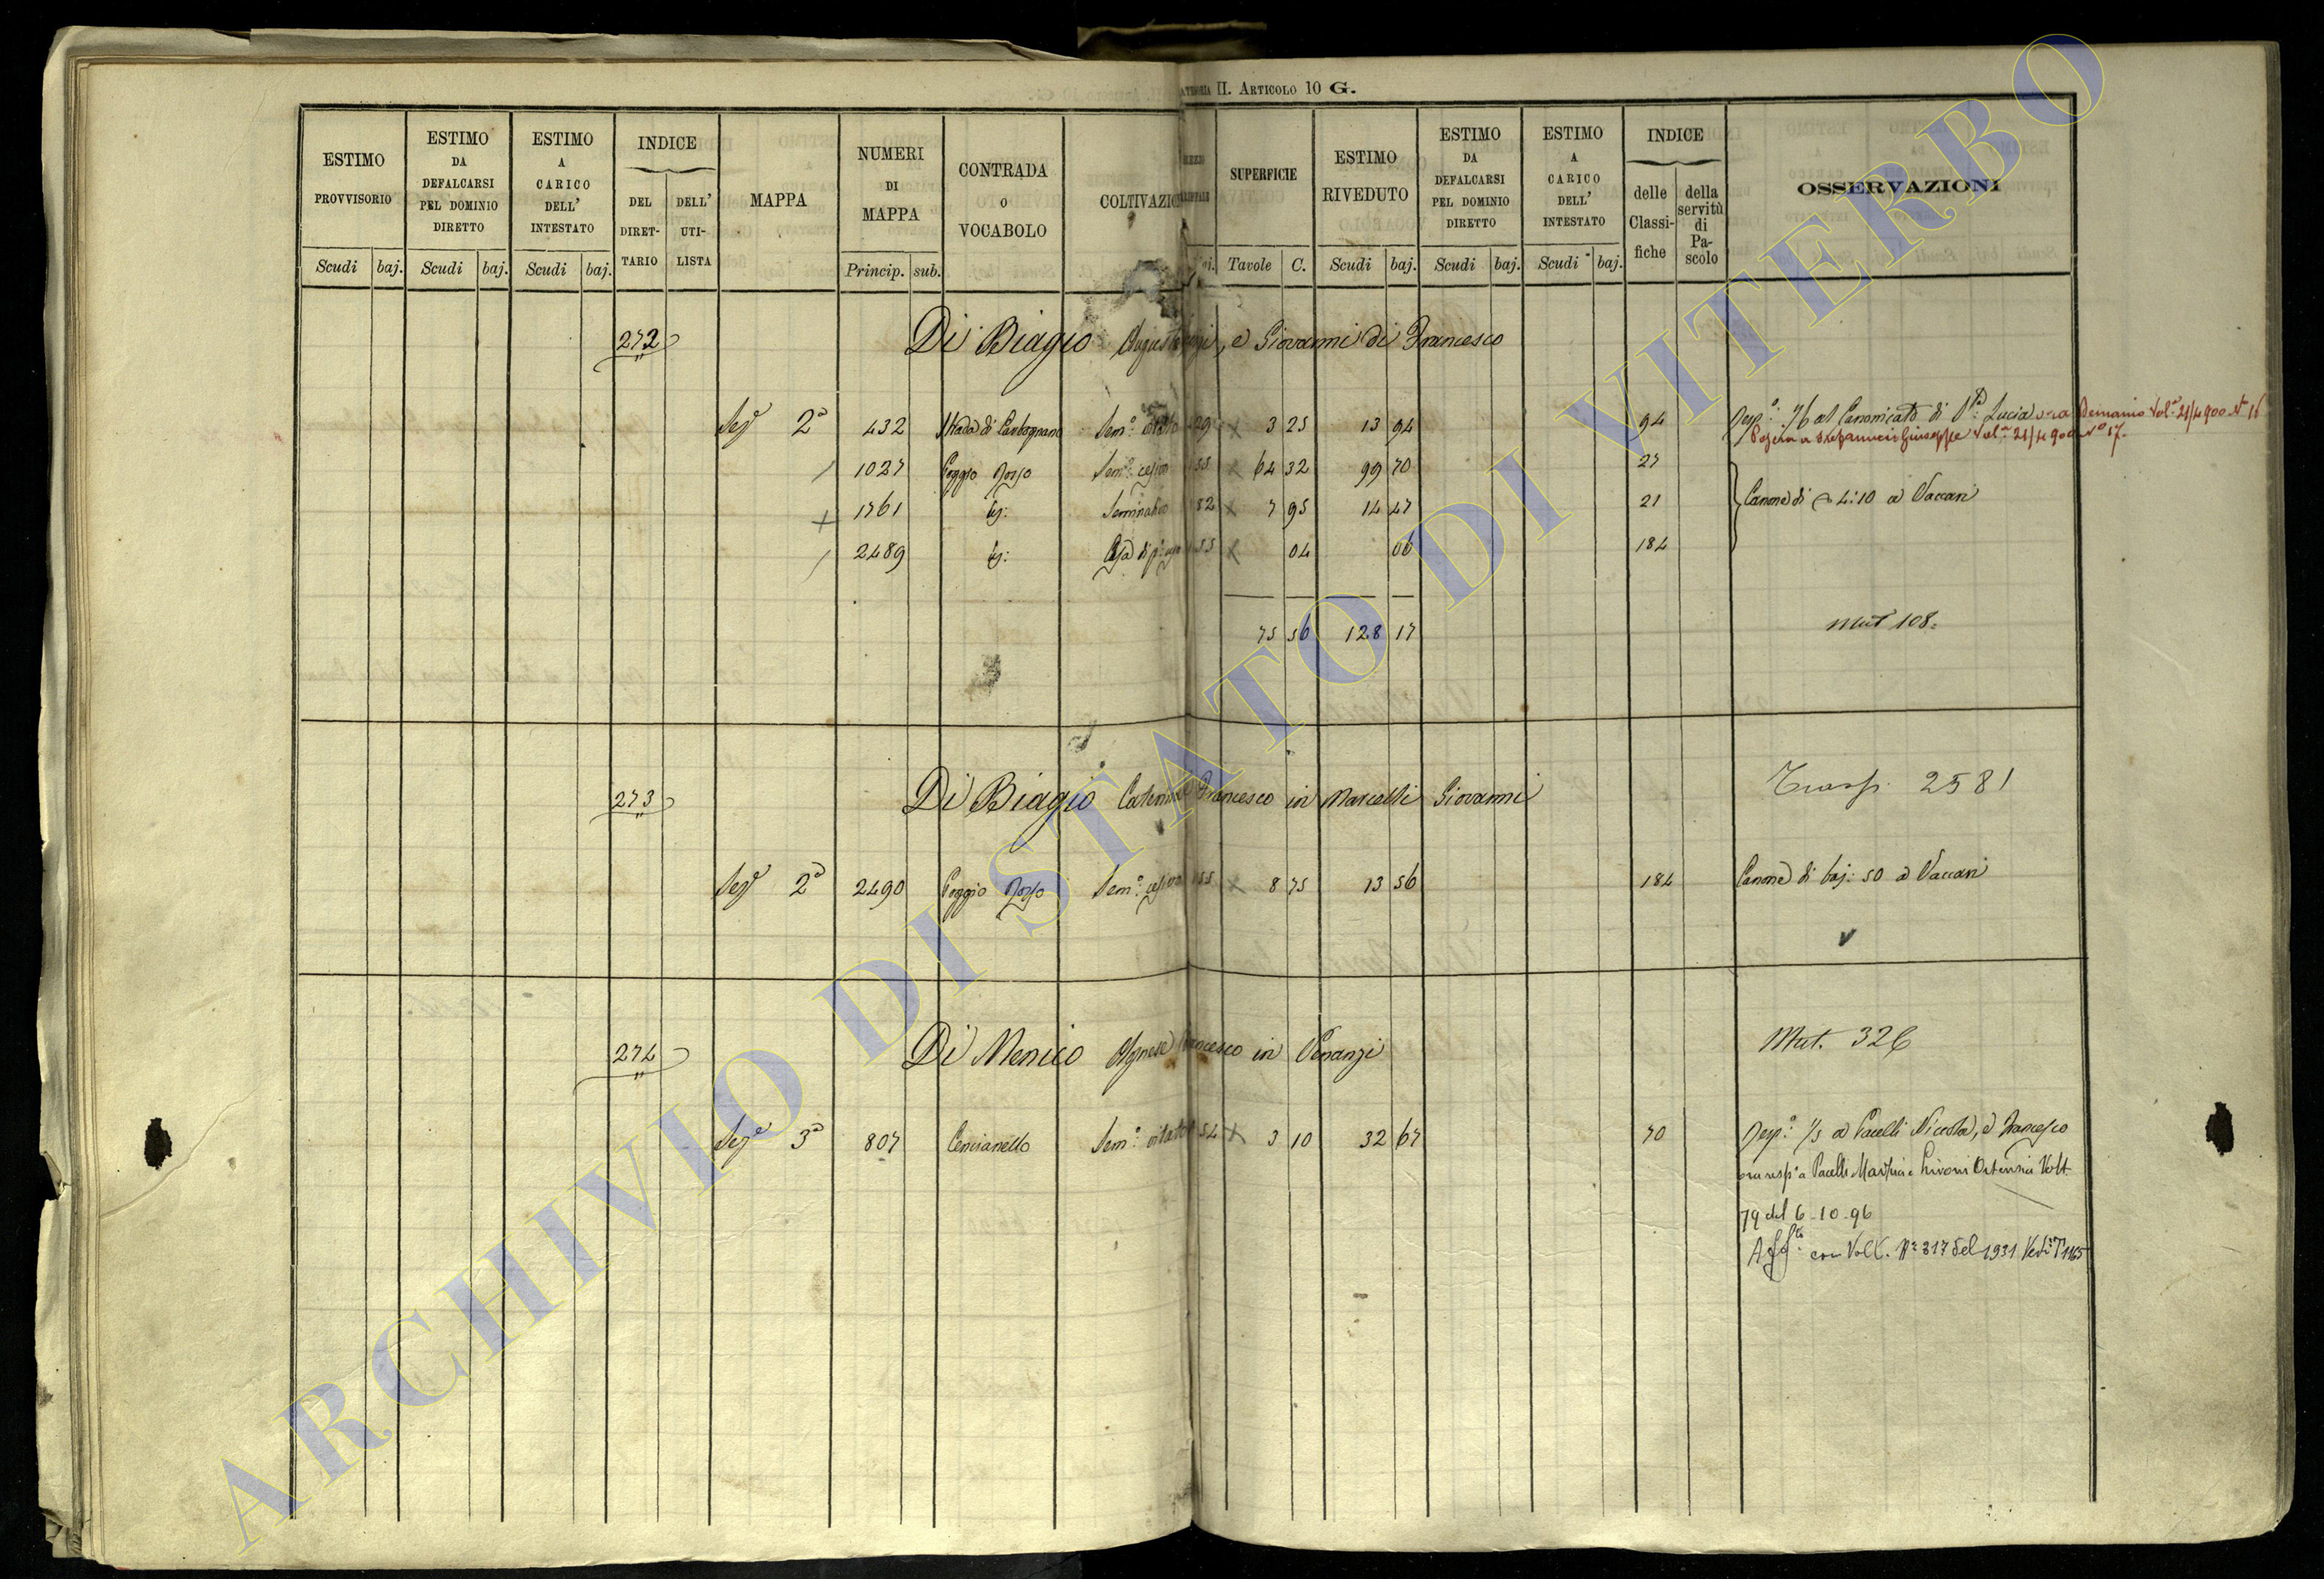 CATEGORIA II. ARTICOLO 10 G.
ESTIMO PROVVISORIO
ESTIMO DA DEFALCARSI PEL DOMINIO DIRETTO
ESTIMO A CARICO DELL' INTESTATO
INDICE
DEL DIRETTARIO
DELL' UTILISTA
MAPPA
NUMERI DI MAPPA
CONTRADA O VOCABOLO
COLTIVAZIO
SUPERFICIE
ESTIMO RIVEDUTO
ESTIMO DA DEFALCARSI PEL DOMINIO DIRETTO
ESTIMO A CARICO DELL' INTESTATO
INDICE
delle Classifiche
della servitù di Pascolo
OSSERVAZIONI
Scudi baj. Scudi baj. Scudi baj. Princip. sub. Tavole C. Scudi baj. Scudi baj. Scudi baj.
272 Di Biagio e Giovanni di Francesco
Sez.e 2a 432 Strada di Sem.o 29 3 25 13 94 94 Resp.a 1/6 al Canonicato di S.a Lucia ora Demanio Vol.a 21/4 900 N. 16
Giuseppe Vol.a 21/4 900 N.o 17.
1027 Poggio Rosso Sem.o 55 64 32 99 70 27
1761 Id: Seminativo 82 7 95 14 47 21 Canone di 4:10 a Vaccari
2489 Id: Casa di p. uso 55 04 06 184
75 56 128 17 Mut 108.
273 Di Biagio Caterina Francesco in Marcelli Giovanni Trasp. 2581
Sez.e 2a 2490 Poggio Rosso Sem.o 55 8 75 13 56 184 Canone di baj: 50 a Vaccari
V
274 Di Menico Agnese Francesco in Venanzi Mut. 326
Sez.e 3a 807 Cencianello Sem.o vitato 54 3 10 32 67 70 Resp.a 1/5 a Pacelli Nicola, e Francesco
ora resp.a a Pacelli e Ortensia Volt.
79 del 6-10-96
con Volt. N.o 317 del 1931 Vedi T 1165
ARCHIVIO DI STATO DI VITERBO